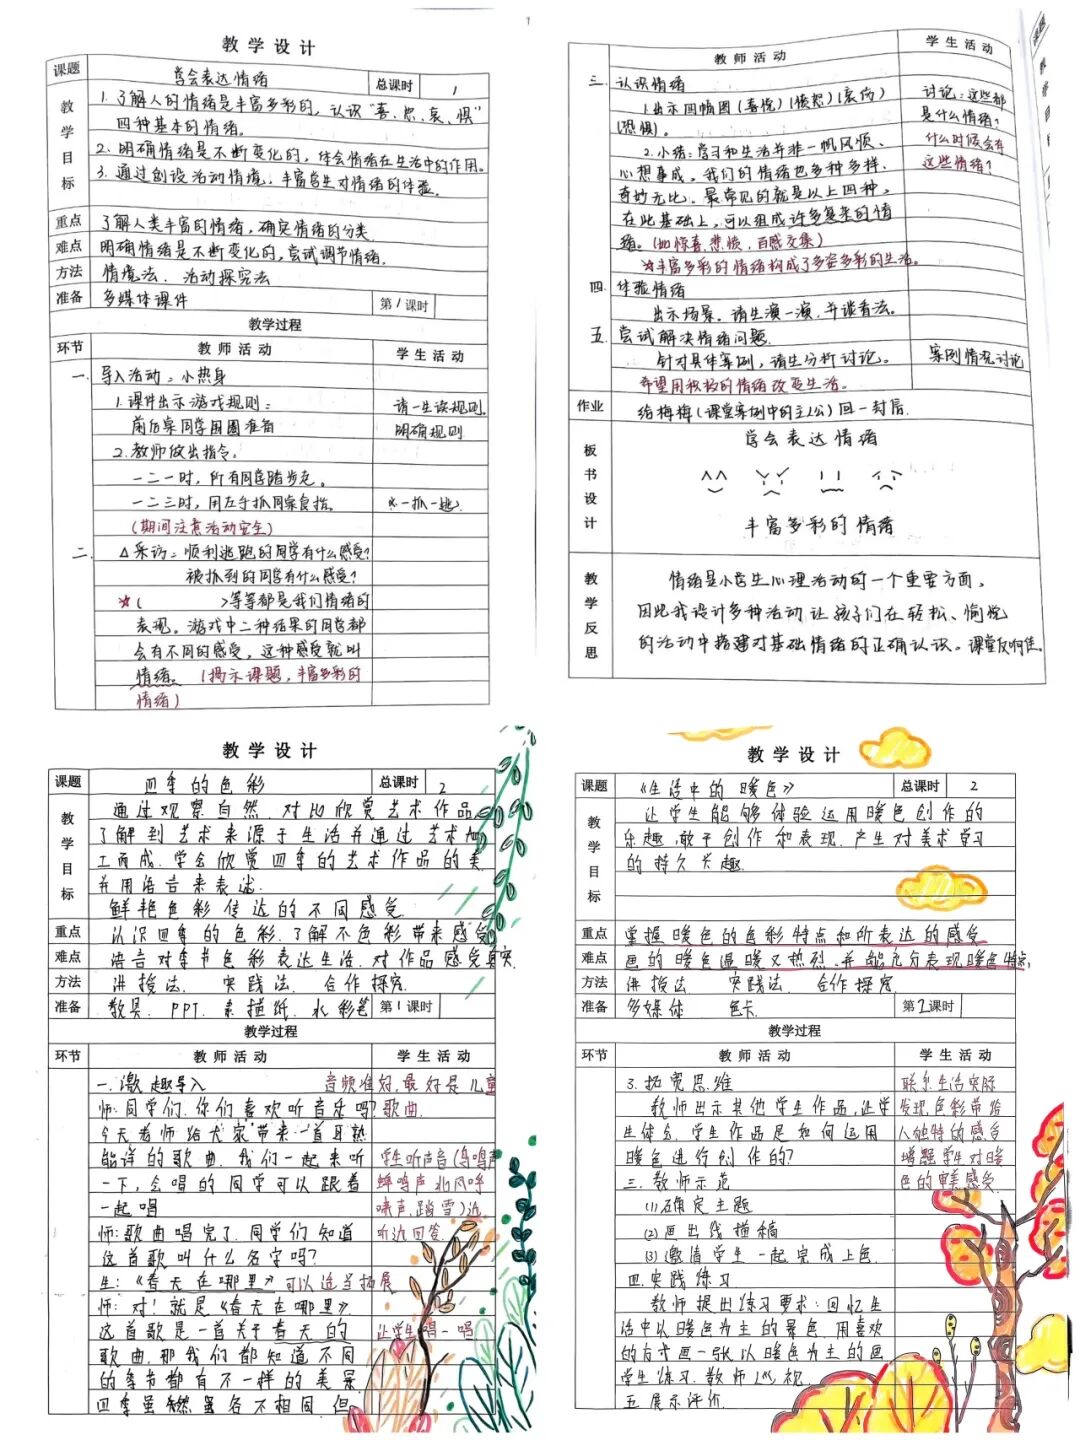 教学设计
课题 学会表达情绪 总课时 1
教学目标
1. 了解人的情绪是丰富多彩的，认识“喜、怒、哀、惧”
四种基本的情绪。
2. 明确情绪是不断变化的，体会情绪在生活中的作用。
3. 通过创设活动情境，丰富学生对情绪的体验。
重点 了解人类丰富的情绪，确定情绪的分类
难点 明确情绪是不断变化的，尝试调节情绪。
方法 情境法、活动探究法
准备 多媒体课件 第1课时
教学过程
环节 教师活动 学生活动
一. 导入活动：小热身
1. 课件出示游戏规则： 请一生读规则
前后桌同学围圈准备 明确规则
2. 教师做出指令。
一二一时，所有同学踏步走。
一二三时，用左手抓同桌食指。 (一抓一逃)
(期间注意活动安全)
二. △采访：顺利逃跑的同学有什么感受？
被抓到的同学有什么感受？
☆( )等等都是我们情绪的
表现。游戏中二种结果的同学都
会有不同的感受，这种感受就叫
情绪。(揭示课题，丰富多彩的
情绪)
教师活动 学生活动
三. 认识情绪
1. 出示四幅图(喜悦)(愤怒)(哀伤) 讨论：这些都
(恐惧)。 是什么情绪？
2. 小结：学习和生活并非一帆风顺、 什么时候会有
心想事成，我们的情绪也多种多样、 这些情绪？
奇妙无比。最常见的就是以上四种，
在此基础上，可以组成许多复杂的情
绪。(如惊喜、悲愤、百感交集)
☆丰富多彩的情绪构成了多姿多彩的生活。
四. 体验情绪
出示场景，请生演一演，并谈看法。
五. 尝试解决情绪问题
针对具体案例，请生分析讨论。 案例情况讨论
希望用积极的情绪改变生活。
作业 给梅梅(课堂案例中的主人公)回一封信
板书设计
学会表达情绪
丰富多彩的情绪
教学反思
情绪是小学生心理活动的一个重要方面，
因此我设计多种活动让孩子们在轻松、愉悦
的活动中搭建对基础情绪的正确认识。课堂反响佳。
教学设计
课题 四季的色彩 总课时 2
教学目标
通过观察自然，对比欣赏艺术作品，
了解到艺术来源于生活并通过艺术加
工而成，学会欣赏四季的艺术作品的美
并用语言来表述.
鲜艳色彩传达的不同感受
重点 认识四季的色彩，了解不色彩带来感受
难点 语言对季节色彩表达生活，对作品感受真实
方法 讲授法. 实践法、合作探究
准备 教具. PPT. 素描纸. 水彩笔 第1课时
教学过程
环节 教师活动 学生活动
一. 激趣导入 音频准好，最好是儿童
师：同学们，你们喜欢听音乐吗？ 歌曲.
今天老师给大家带来一首耳熟
能详的歌曲，我们一起来听 学生听声音(鸟鸣声
一下，会唱的同学可以跟着 蝉鸣声 北风呼
一起唱 啸声，踏雪)边
师：歌曲唱完了，同学们知道 听边回答.
这首歌叫什么名字吗？
生：《春天在哪里》 可以适当拓展
师：对！就是《春天在哪里》.
这首歌是一首关于春天的 让学生唱一唱
歌曲，那我们都知道不同
的季节都有不一样的美景
四季虽然虽各不相同，但
教学设计
课题 《生活中的暖色》 总课时 2
教学目标
让学生能够体验运用暖色创作的
乐趣，敢于创作和表现，产生对美术学习
的持久兴趣
重点 掌握暖色的色彩特点和所表达的感受
难点 画的暖色温暖又热烈，并能充分表现暖色特点
方法 讲授法 实践法. 合作探究
准备 多媒体 色卡 第2课时
教学过程
环节 教师活动 学生活动
3. 拓宽思维 联系生活实际
教师出示其他学生作品，让学 发现色彩带给
生体会，学生作品是如何运用 人独特的感受
暖色进行创作的？ 增强学生对暖
三. 教师示范 色的审美感受
(1)确定主题
(2)画出线描稿
(3)邀请学生一起完成上色.
四. 实践练习
教师提出练习要求：回忆生
活中以暖色为主的景色，用喜欢
的方式画一张以暖色为主的画
学生练习，教师巡视
五. 展示评价